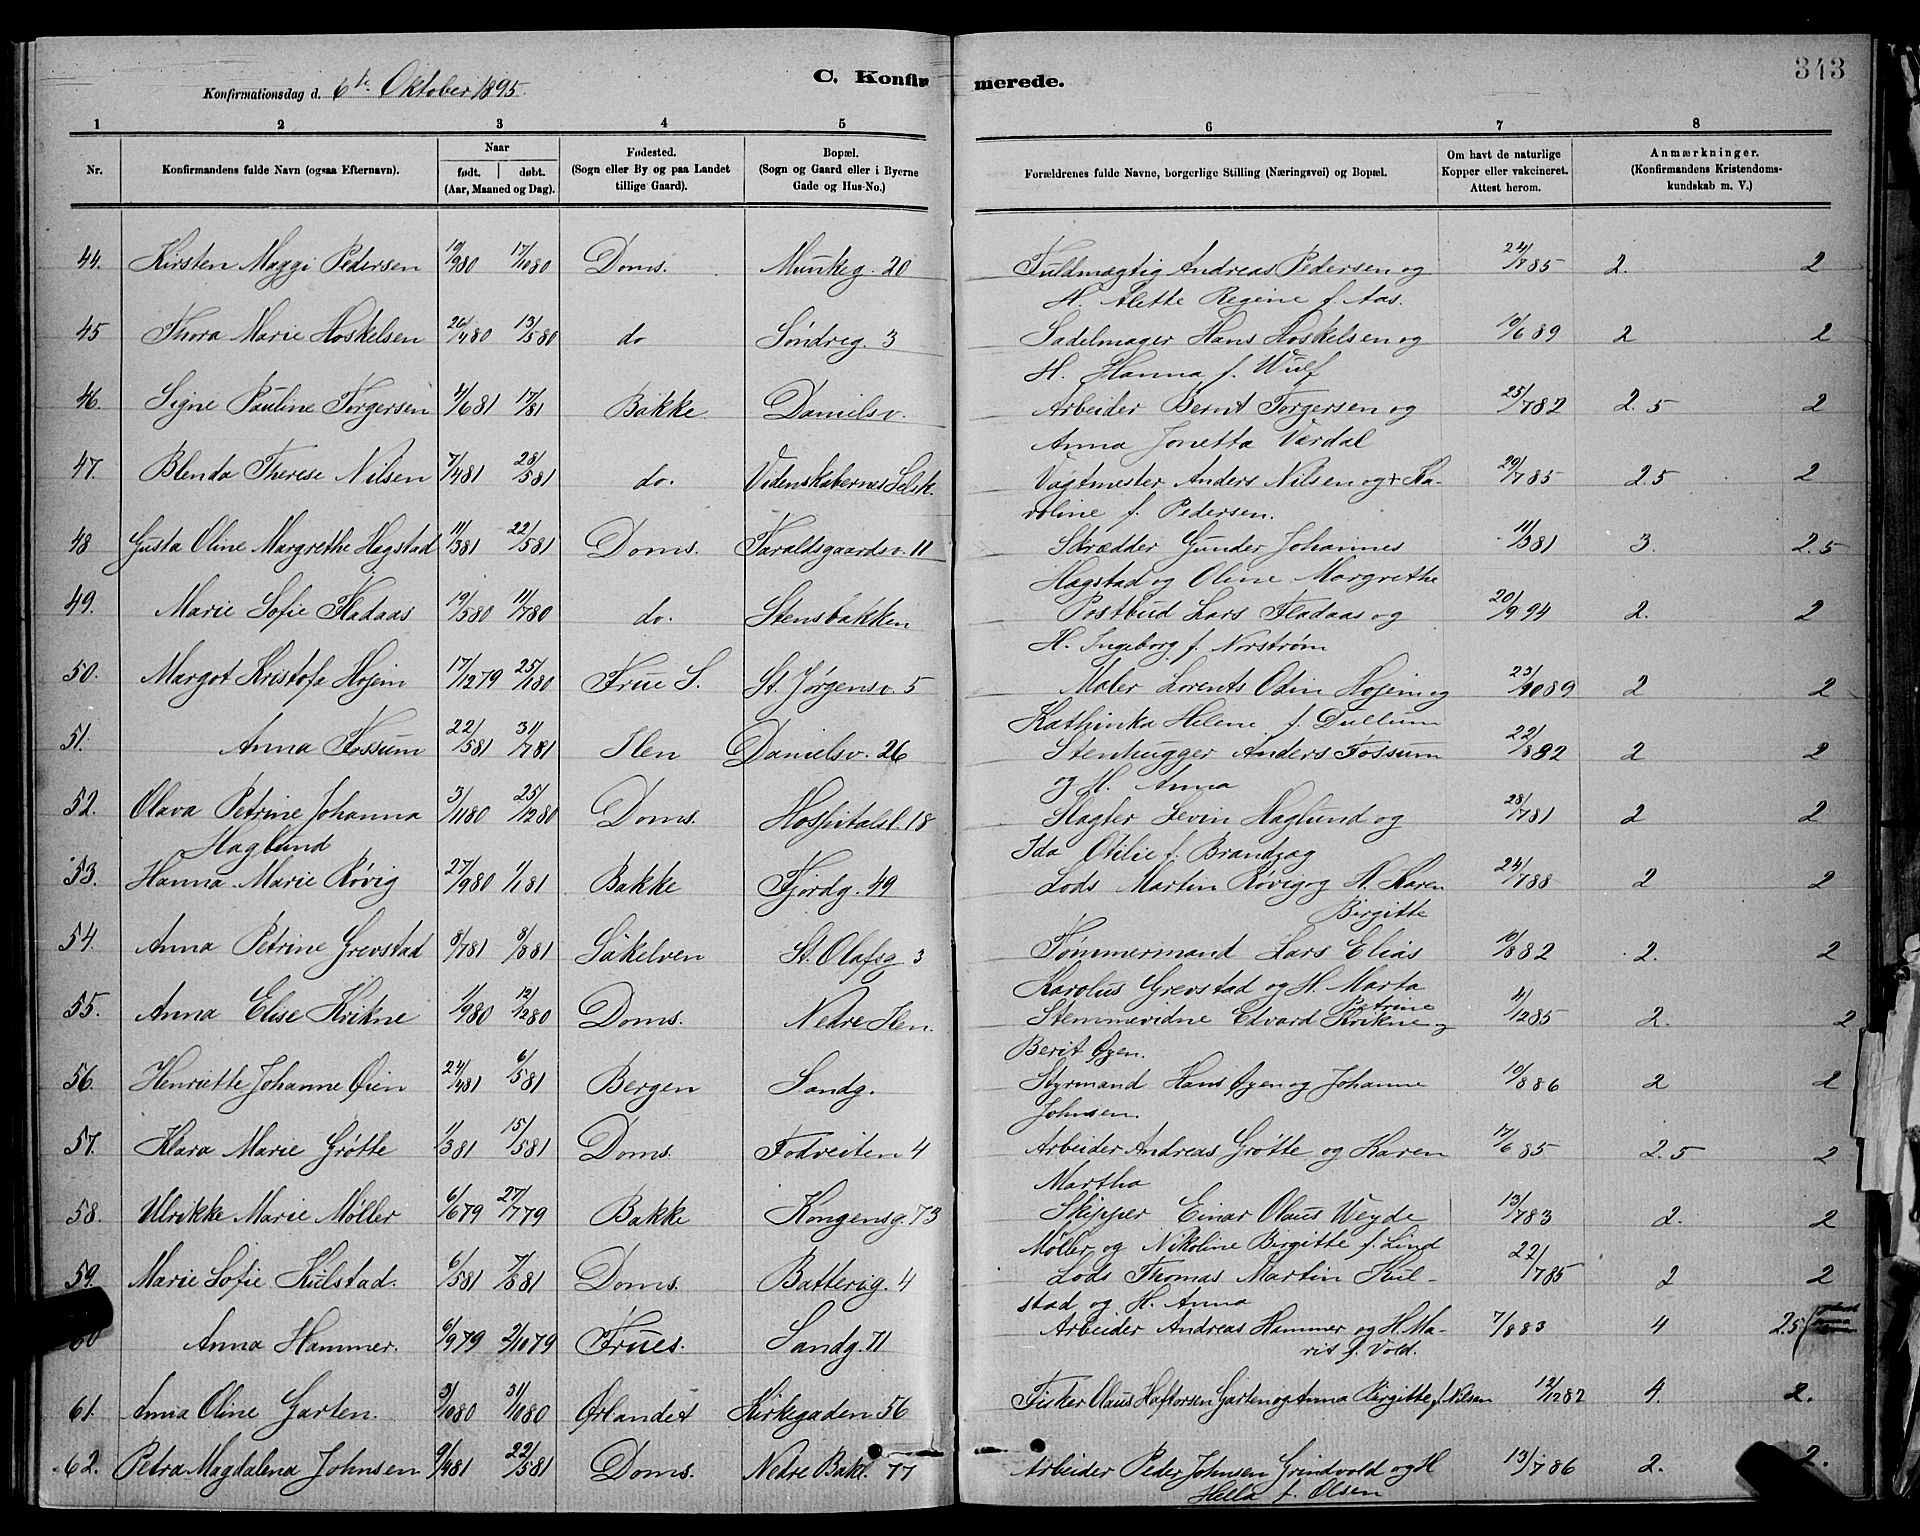 343
C. Konfirmerede.
Konfirmationsdag d. 6te Oktober 1895.
1 2 3 4 5 6 7 8
Nr. Konfirmandens fulde Navn (ogsaa Efternavn). Naar født. døbt. (Aar, Maaned og Dag). Fødested. (Sogn eller By og paa Landet tillige Gaard). Bopæl. (Sogn og Gaard eller i Byerne Gade og Hus-No.) Forældrenes fulde Navne, borgerlige Stilling (Næringsvei) og Bopæl. Om havt de naturlige Kopper eller vakcineret. Attest herom. Anmærkninger. (Konfirmandens Kristendomskundskab m. V.)
44. Kirsten Maggi Pedersen 19/980 17/1080 Doms. Munkeg. 20 Fuldmægtig Andreas Pedersen og 24/785 2. 2
H. Alette Regine f. Aas.
45 Thora Marie Hoskelsen 26/480 13/580 do Søndreg. 3 Sadelmager Hans Hoskelsen og 19/689 2 2
H. Hanna f. Wulf
46. Signe Pauline Torgersen 4/681 17/81 Bakke Danielsv. Arbeider Bernt Torgersen og 25/782 2.5 2
Anna Jonetta Værdal
47. Blenda Therese Nilsen 7/481 28/581 do. Videnskabernes Selsk. Vagtmester Anders Nilsen og Ka- 29/785 2.5 2
roline f. Pedersen.
48 Gusta Oline Margrethe Hagstad 11/381 22/581 Doms. Taraldsgaardsv. 11 Skrædder Gunder Johannes 11/381 3. 2.5
Hagstad og Oline Margrethe
49. Marie Sofie Fladaas 19/580 11/780 do. Stensbakken Postbud Lars Fladaas og 20/994 2. 2
H. Ingeborg f. Norstrøm
50. Margot Kristofa Hojem 17/1279 25/180 Frue S. St. Jørgensv. 5 Maler Lorents Odin Hojem og 23/1089 2 2
Kathinka Helene f. Dullum
51. Anna Fossum 22/581 31/781 Ilen Danielsv. 26 Stenhugger Anders Fossum 22/892 2 2
og H. Anna
52. Olava Petrine Johanna 3/1180 25/1280 Doms. Hospitalsl. 18 Slagter Levin Haglund og 28/781 2 2
Haglund Ida Otilie f. Brandzag
53. Hanna Marie Røvig 27/980 1/181 Bakke Fjordg. 49 Lods Martin Røvig og H. Karen 24/788 2 2
Birgitte
54. Anna Petrine Grevstad 8/781 8/881 Søkelven St. Olafsg 3 Tømmermand Lars Elias 10/882 2. 2
Karolus Grevstad og H. Marta
Petrine
55. Anna Elise Kvikne 1/980 12/1280 Doms. Nedre Ilen. Stemmevidne Edvard Kvikne og 4/1285 2. 2
Berit Øyen.
56. Henriette Johanne Øien 24/481 6/581 Bergen Sandg. Styrmand Hans Øyen og Johanne 10/886 2 2
Johnsen.
57. Klara Marie Grøtte 1/381 15/581 Doms. Fodveiten 4 Arbeider Andreas Grøtte og Karen 17/685 2.5 2
Martha
58. Ulrikke Marie Møller 6/679 27/779 Bakke Kongensg. 73 Skipper Einar Olaus Weyde 13/783 2. 2
Møller og Nikoline Birgitte f. Lind
59. Marie Sofie Kulstad. 6/581 7/881 Doms. Batterig. 4 Lods Thomas Martin Kul- 22/785 2 2
stad og H. Anna
60 Anna Hammer. 6/979 2/1079 Frues. Sandg. 71 Arbeider Andreas Hammer og H. Ma- 7/883 4 2.5
rit f. Vold.
61. Anna Oline Garten. 3/1080 31/1080 Ørlandet Kirkegaden 56 Fisker Olaus Haftorsen Garten og Anna Birgitte f. Nilsen 12/1282 4. 2.
62. Petra Magdalena Johnsen 9/481 22/581 Doms. Nedre Bakl. 77 Arbeider Peder Johnsen Grindvold og H 13/786 2. 2.
Hella f. Olsen